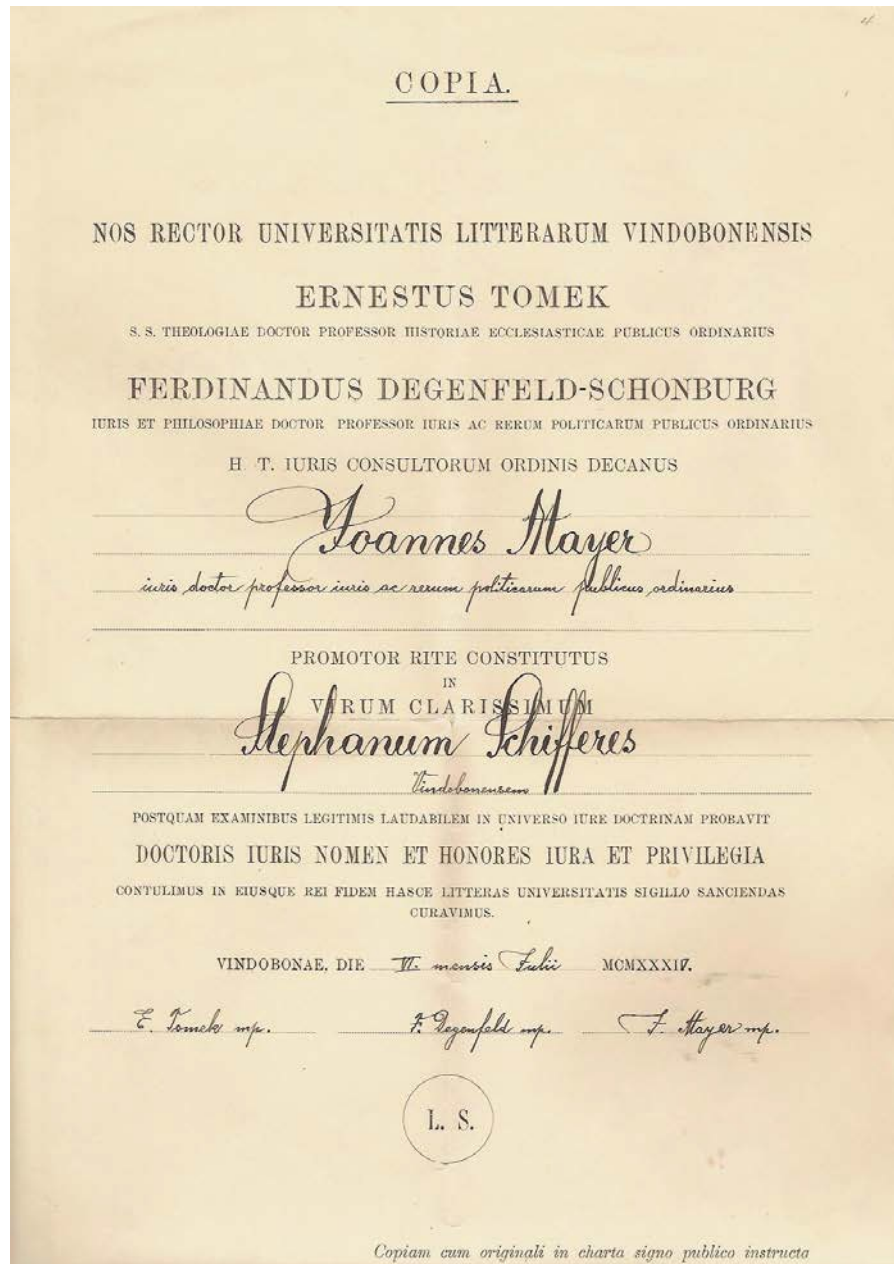 COPIA.
NOS RECTOR UNIVERSITATIS LITTERARUM VINDOBONENSIS
ERNESTUS TOMEK
S. S. THEOLOGIAE DOCTOR PROFESSOR HISTORIAE ECCLESIASTICAE PUBLICUS ORDINARIUS
FERDINANDUS DEGENFELD-SCHONBURG
IURIS ET PHILOSOPHIAE DOCTOR PROFESSOR IURIS AC RERUM POLITICARUM PUBLICUS ORDINARIUS
H T. IURIS CONSULTORUM ORDINIS DECANUS
Joannes Mayer
iuris doctor professor iuris ac rerum politicarum publicus ordinarius
PROMOTOR RITE CONSTITUTUS
IN
VIRUM CLARISSIMUM
Stephanum Schifferes
Vindobonensem
POSTQUAM EXAMINIBUS LEGITIMIS LAUDABILEM IN UNIVERSO IURE DOCTRINAM PROBAVIT
DOCTORIS IURIS NOMEN ET HONORES IURA ET PRIVILEGIA
CONTULIMUS IN EIUSQUE REI FIDEM HASCE LITTERAS UNIVERSITATIS SIGILLO SANCIENDAS
CURAVIMUS.
VINDOBONAE, DIE VI. mensis Julii MCMXXXIV.
E. Tomek mp. F. Degenfeld mp. J. Mayer mp.
L. S.
Copiam cum originali in charta signo publico instructa